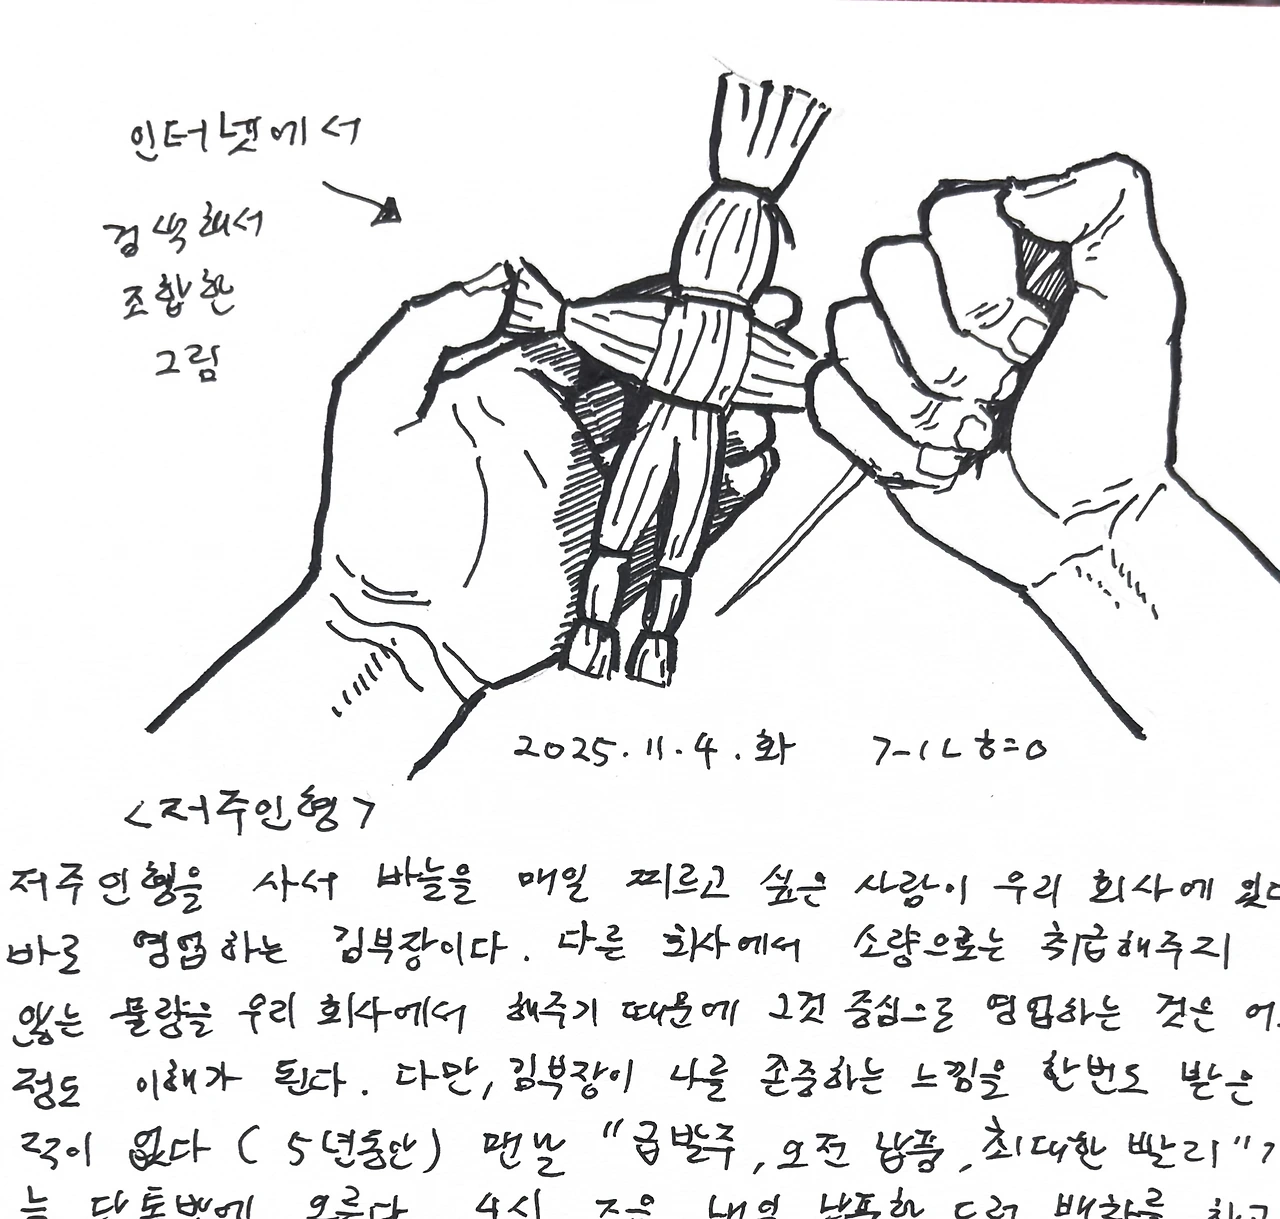 인터넷에서
검색해서
조합한
그림
2025.11.4.화
<저주인형>
저주인형을 사서 바늘을 매일 찌르고 싶은 사람이 우리 회사에 있다
바로 영업하는 김부장이다. 다른 회사에서 소량으로는 취급해주지
않는 물량을 우리 회사에서 해주기 때문에 그것 중심으로 영업하는 것은
정도 이해가 된다. 다만, 김부장이 나를 존중하는 느낌을 한번도 받은
적이 없다 (5년동안) 맨날 "급발주, 오전 납품, 최대한 빨리"
는 단톡방에 오른다 4시